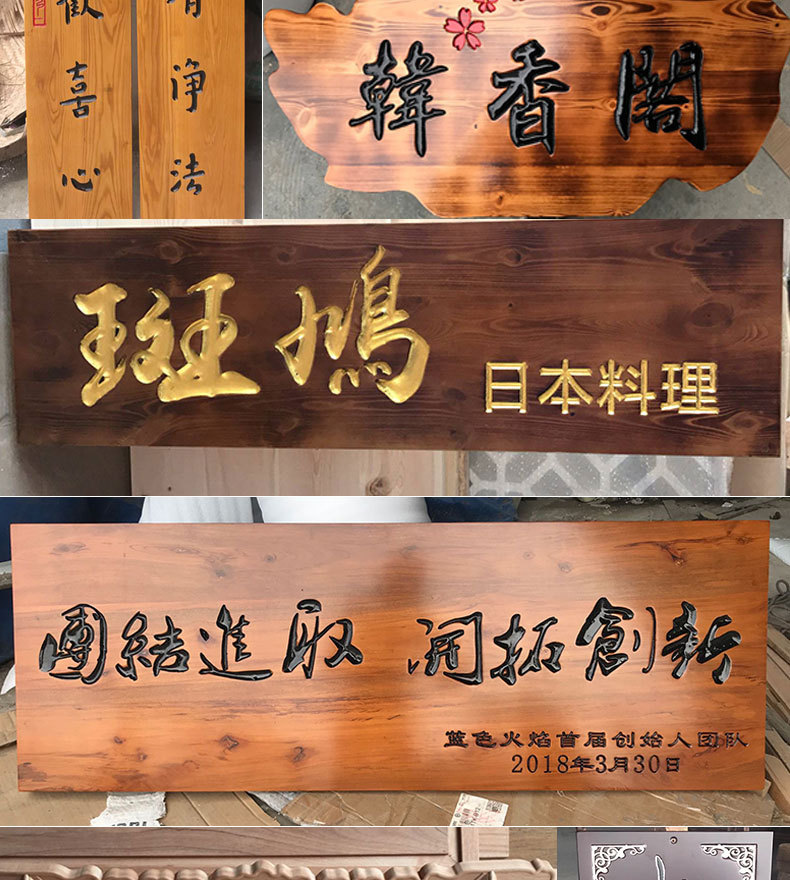 歡喜心
清净法
韓香閣
斑鳩
日本料理
團結進取 開拓創新
蓝色火焰首届创始人团队
2018年3月30日